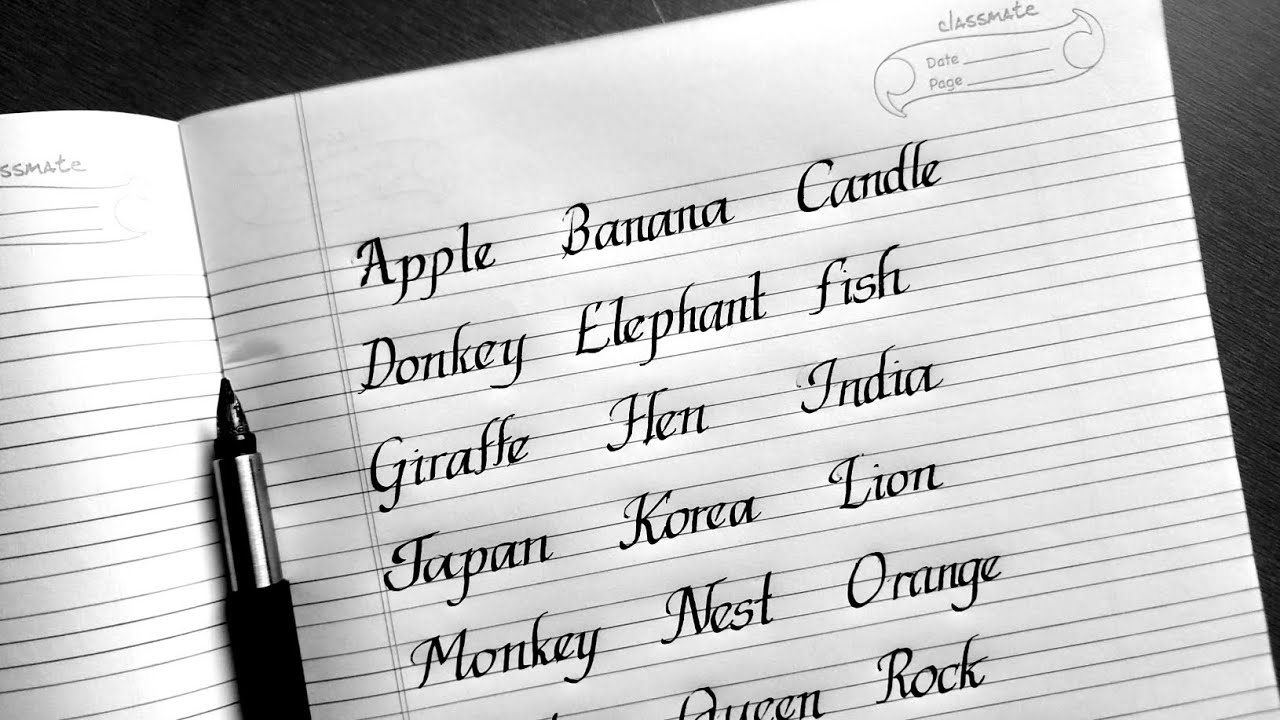 classmate
Date
Page
Apple Banana Candle
Donkey Elephant fish
Giraffe Hen India
Japan Korea Lion
Monkey Nest Orange
Queen Rock